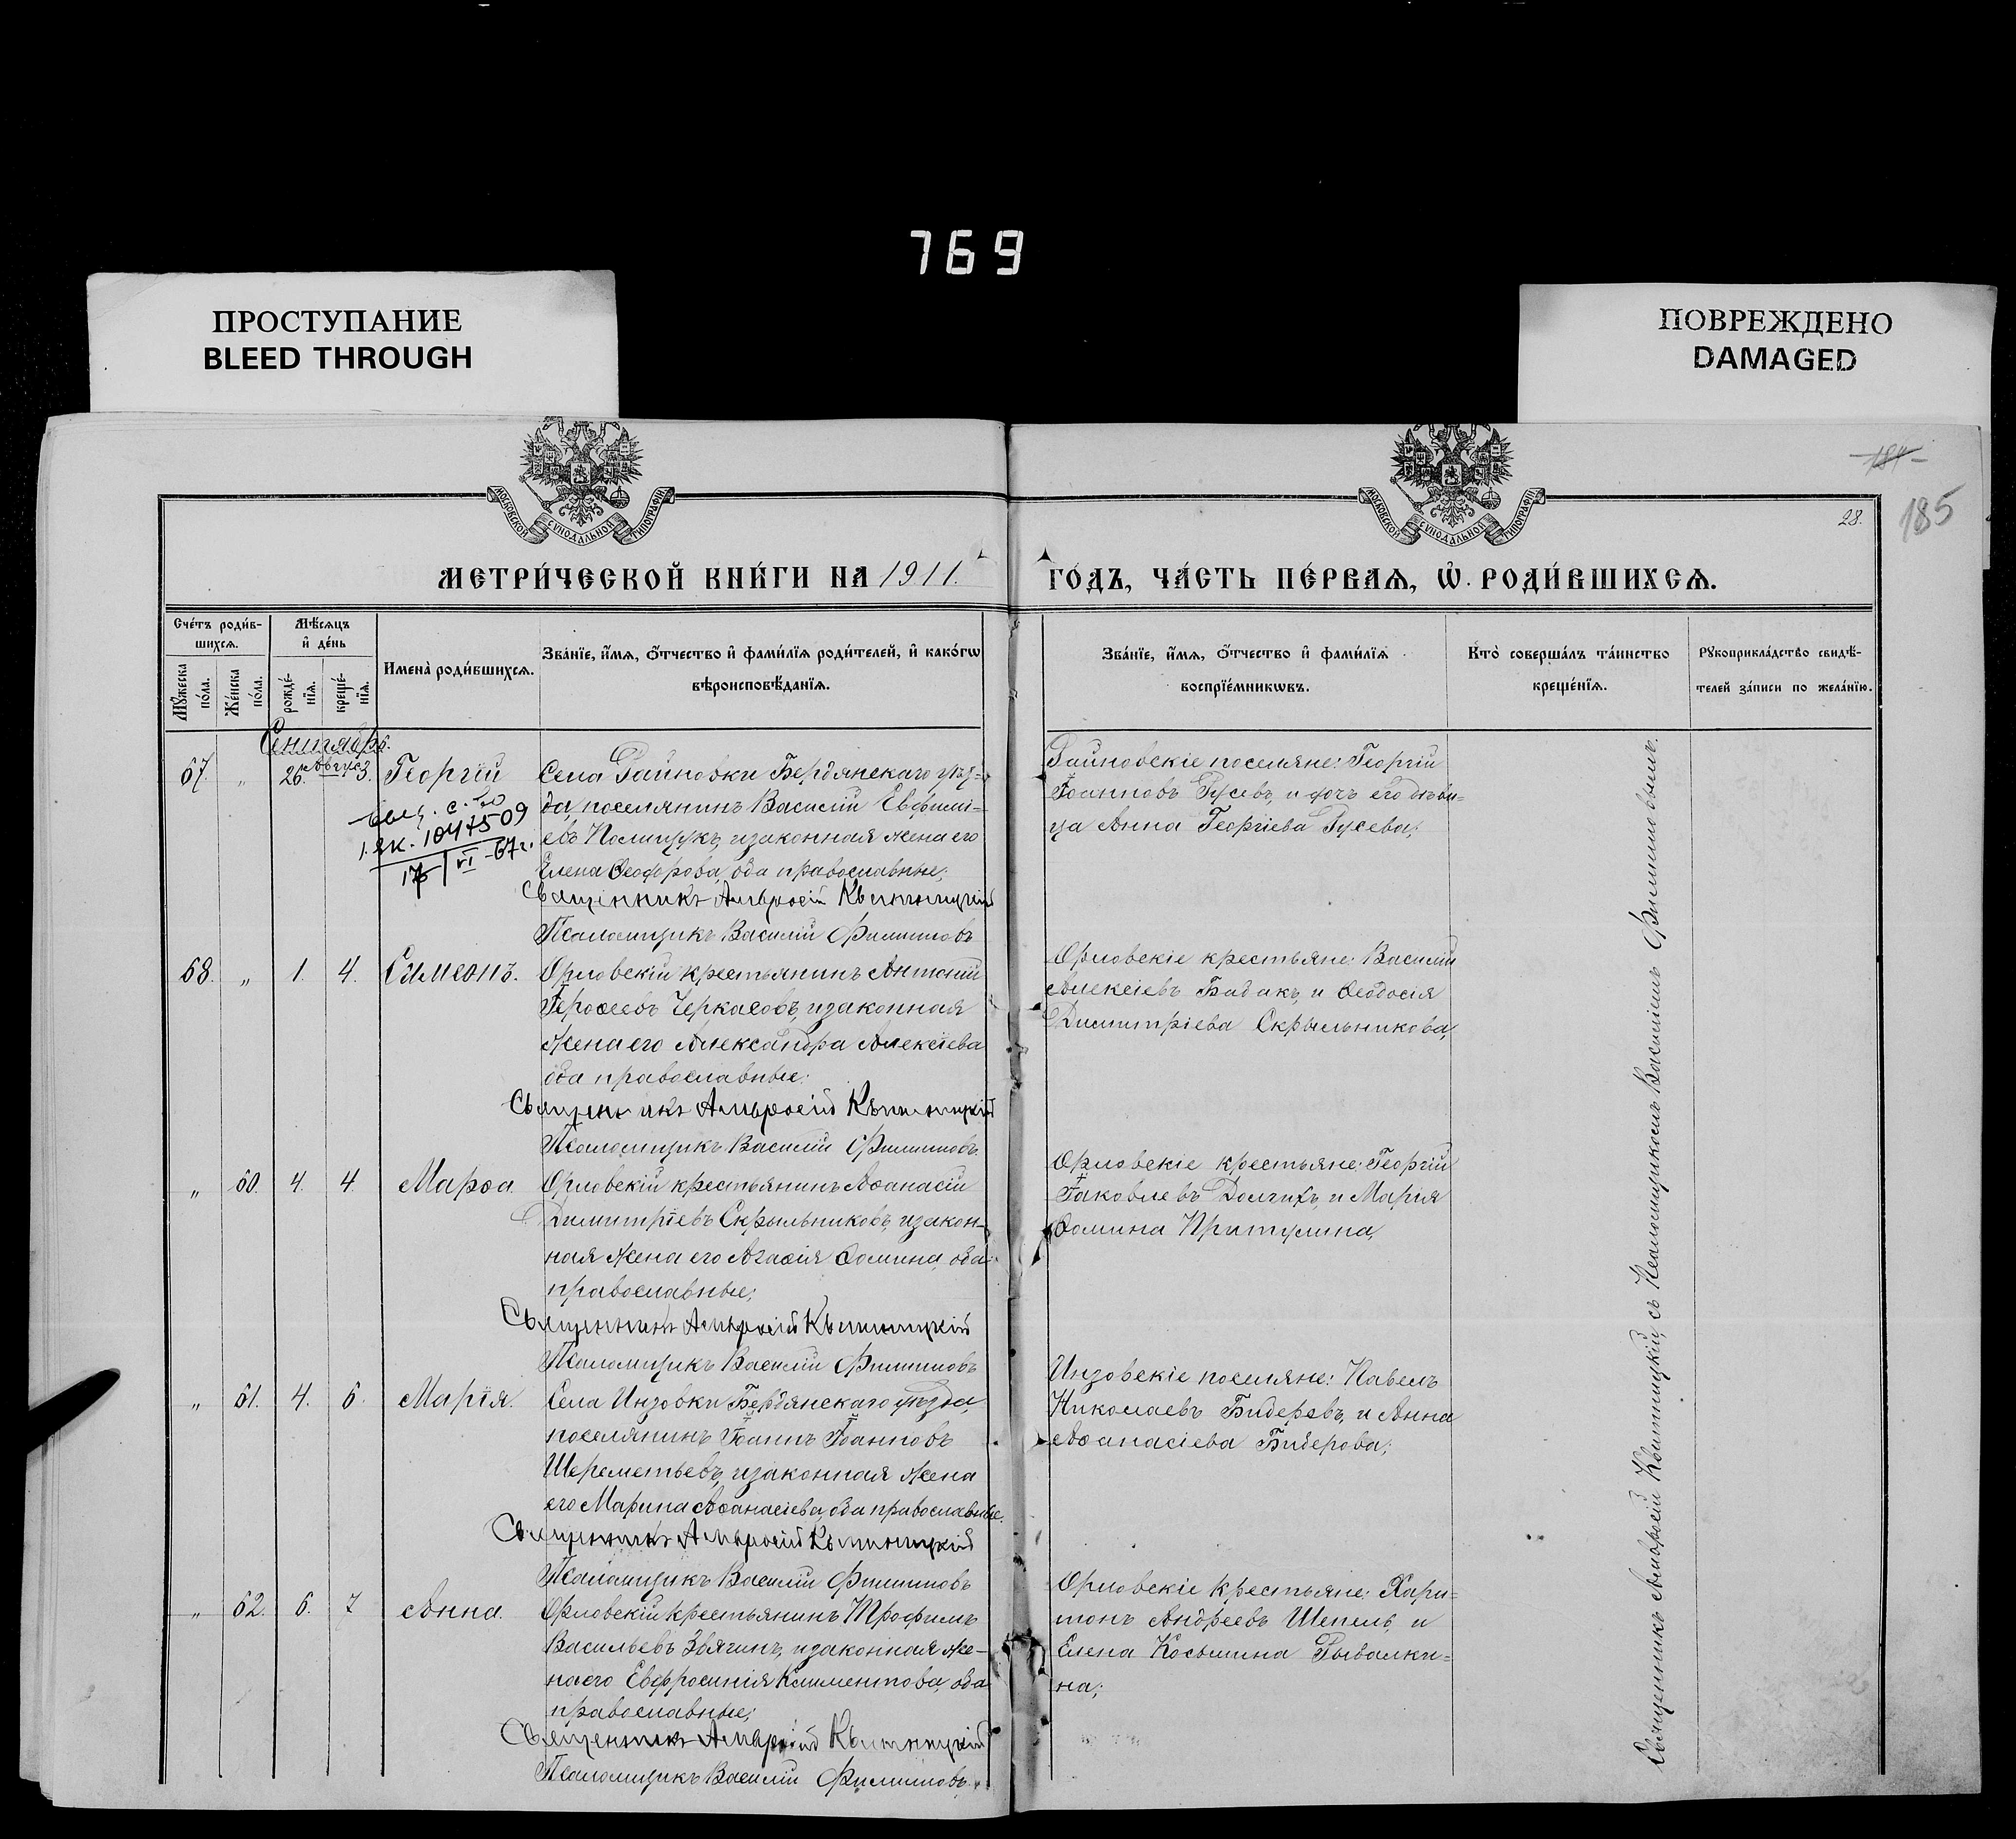 769
ПРОСТУПАНИЕ
BLEED THROUGH
ПОВРЕЖДЕНО
DAMAGED
МОСКОВСКОЙ СѴНОДАЛЬНОЙ ТИПОГРАФІИ
МОСКОВСКОЙ СѴНОДАЛЬНОЙ ТИПОГРАФІИ
28.
185
МЕТРИ́ЧЕСКОЙ КНИ́ГИ НА 1911.
ГО́ДЪ, ЧА́СТЬ ПЕ́РВАѦ, Ѡ҆. РОДИ́ВШИХСѦ.
Сче́тъ роди́в-
шихсѧ.
Мꙋ́жеска по́ла.
Же́нска по́ла.
Мѣ́сѧцъ
и҆ де́нь
рожде́-
нїѧ.
креще́-
нїѧ.
Имена̀ роди́вшихсѧ.
Зва́нїе, и҆́мѧ, ѻ҆́тчество и҆ фами́лїѧ роди́телей, и҆ како́гѡ
вѣроисповѣ́данїѧ.
Зва́нїе, и҆́мѧ, ѻ҆́тчество и҆ фами́лїѧ
воспрїе́мникѡвъ.
Кто̀ соверша́лъ та́инство
креще́нїѧ.
Рꙋкоприкла́дство свидѣ́-
телей за́писи по жела́нїю.
Сентябрь.
Август
67. „ 26. 3. Георгій
Села Райновки Бердянскаго уѣз-
да, поселянинъ Василій Евфимі-
евъ Полищукъ, и законная жена его
Елена Ѳеодорова, оба православные;
Священникъ Амвросій Квитницкій
Псаломщикъ Василій Филиповъ
1047509
17/VI-67г.
Райновскіе поселяне: Георгій
Іоанновъ Гусевъ, и дочь его дѣви-
ца Анна Георгіева Гусева;
68. „ 1. 4. Симеонъ.
Орловскій крестьянинъ Антоній
Іероѳеевъ Черкасовъ, и законная
жена его Александра Алексіева
оба православные;
Священникъ Амвросій Квитницкій
Псаломщикъ Василій Филиповъ
Орловскіе крестьяне: Василій
Алексіевъ Бадакъ, и Ѳеодосія
Димитріева Скрыльникова;
„ 60. 4. 4. Марѳа.
Орловскій крестьянинъ Аѳанасій
Димитріевъ Скрыльниковъ, и закон-
ная жена его Агаѳія Ѳомина, оба
православные;
Священникъ Амвросій Квитницкій
Псаломщикъ Василій Филиповъ
Орловскіе крестьяне: Георгій
Іаковлевъ Долгихъ, и Марія
Ѳомина Притулина;
„ 61. 4. 6. Марія.
Села Инзовки Бердянскаго уѣзда,
поселянинъ Іоаннъ Іоанновъ
Шереметьевъ, и законная жена
его Марина Аѳанасіева, оба православные.
Священникъ Амвросій Квитницкій
Псаломщикъ Василій Филиповъ
Инзовскіе поселяне: Павелъ
Николаевъ Бидеровъ, и Анна
Аѳанасіева Бидерова;
„ 62. 6. 7 Анна.
Орловскій крестьянинъ Трофимъ
Васильевъ Звягинъ, и законная же-
на его Евфросинія Климентова, оба
православные;
Священникъ Амвросій Квитницкій
Псаломщикъ Василій Филиповъ
Орловскіе крестьяне: Хари-
тонъ Андреевъ Шепель, и
Елена Косьмина Рыбалки-
на;
Священникъ Амвросій Квитницкій, съ Псаломщикомъ Василіемъ Филиповымъ.